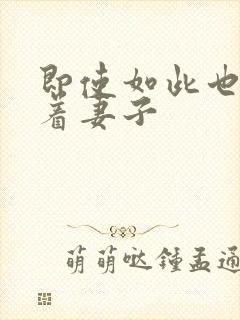 即使如此也
着妻子
萌萌哒钟孟通